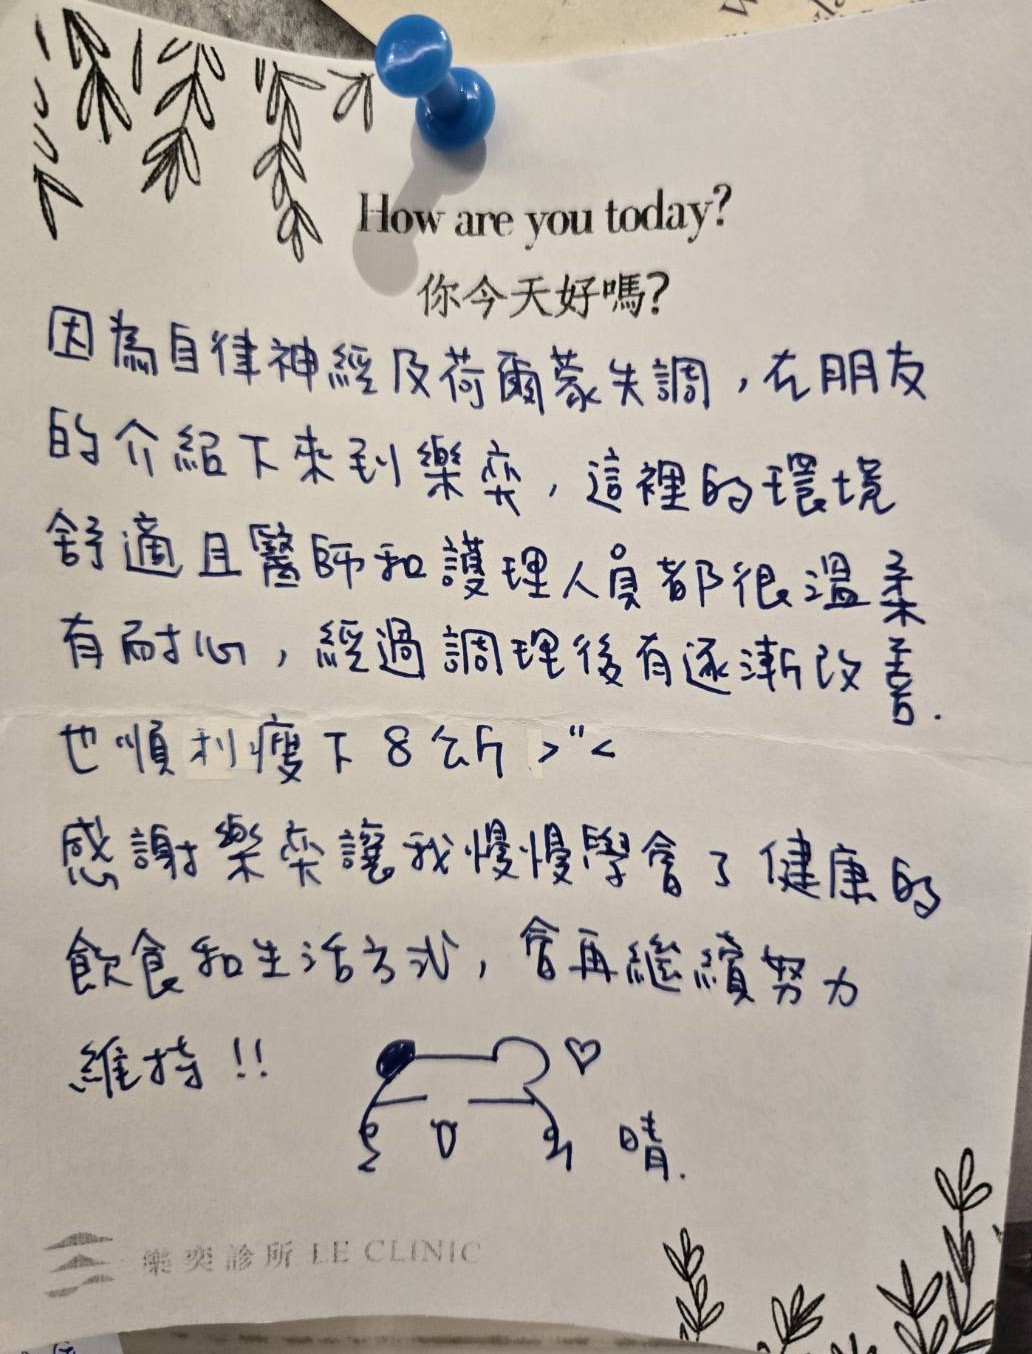 How are you today?
你今天好嗎?
因為自律神經及荷爾蒙失調，在朋友
的介紹下來到樂奕，這裡的環境
舒適且醫師和護理人員都很溫柔
有耐心，經過調理後有逐漸改善.
也順利瘦下8公斤 >"<
感謝樂奕讓我慢慢學會了健康的
飲食和生活方式，會再繼續努力
維持!!
晴.
樂奕診所 LE CLINIC